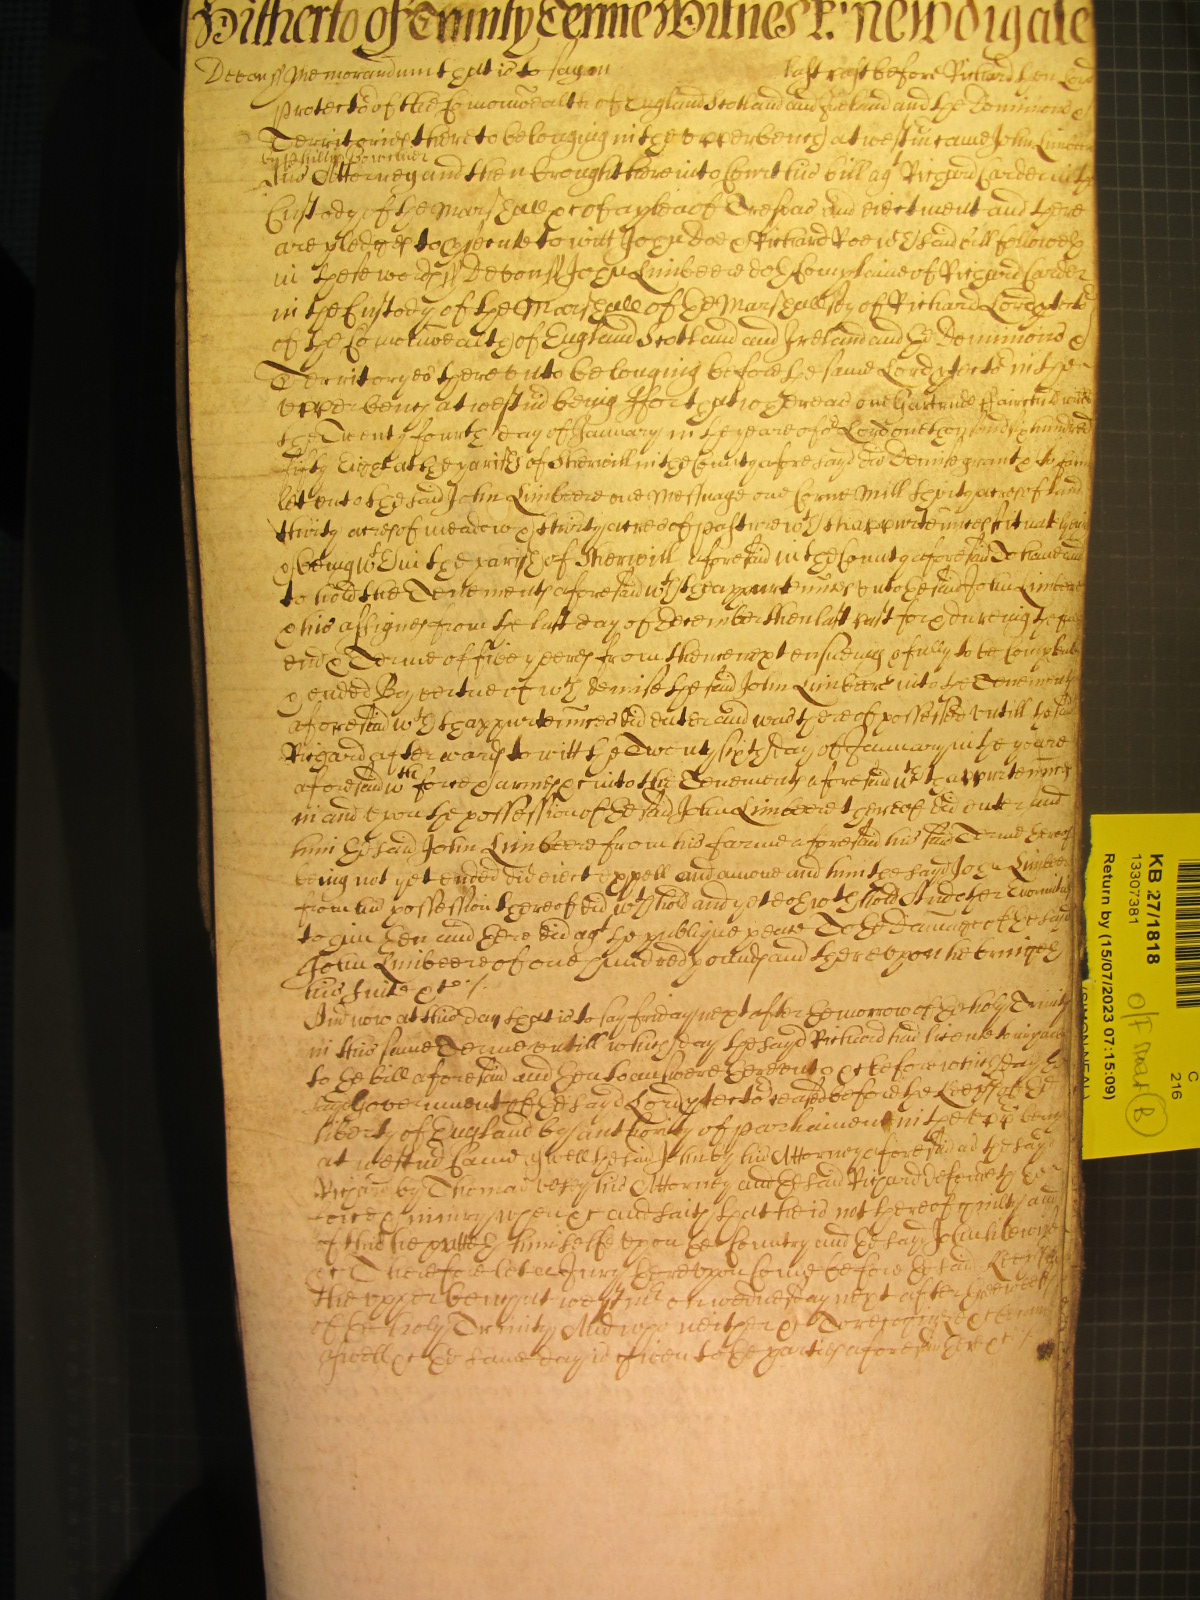 Hitherto of Trinity Terme Witnes R: Newdigate
Devon ss Memorandum that is to say on last past before Richard then Lord
Protector of the Comonwealth of England Scotland and Ireland and the Dominions &
Territories thereto belonging in the upper bench at westm came John Limbeere
by Phillip
his Attorney and then brought here into Court his bill agt Richard Carder in the
Custody of the Marshall &c of a plea of Trespas and eiectment and there
are pledges to prosecute to witt John Doe & Richard Roe wch said bill followeth
in these words ss Devon ss John Limbeere doth Complaine of Richard Carder
in the Custody of the Marshall of the Marshallsey of Richard Lord Protector
of the Comonwealth of England Scotland and Ireland and the Dominions &
Territoryes thereunto belonging before the same Lord Protector in the
upper bench at westm being ffor that whereas one Gartrude
the Twenty fourth day of January in the yeare of our Lord one thousand six hundred
fifty Eight at the parish of Sherwill in the County aforesayd did Demise grant & to farme
lett unto the said John Limbeere one Messuage one Corne Mill thirty acres of land
thirty acres of meadow & thirty acres of pasture wth thappurtennces situat lyeing
& being wthin the parish of Sherwill aforesaid in the County aforesaid To have and
to hold the Tenements aforesaid wth thappurtennces unto the said John Limbeere
& his assignes from the last day of December then last past for & dureing the full
end & Terme of five yeeres from thence next ensueing & fully to be Compleate
& ended By vertue of wch demise the said John Limbeere into the Tenements
aforesaid wth thappurtennces did enter and was thereof possessed untill the said
Richard afterwards to witt the Twenty sixth day of January in the yeare
aforesaid wth force & armes &c into the Tenements aforesaid wth thappurtennces
in and upon the possession of the said John Limbeere thereof did enter and
him the said John Limbeere from his farme aforesaid his said Terme thereof
being not yet ended did eiect expell and amove and him the sayd John Limbeere
from his possession thereof did wthhold and yet doth wthhold And other Enormities
to him then and there did agt the publique peace To the Damage of the sayd
John Limbeere of one hundred pounds and thereupon he bringeth
his suite &c
And now at this day that is to say friday next after the morrow of the holy Trinity
in this same Terme untill which day the sayd Richard had licence to imparle
to the bill aforesaid and then to answere thereunto &c before which day the
sayd Government of the sayd Lord Protector ceased before the Keepers of the
liberty of England by authority of parliament in the upper bench
at westm Came aswell the said John by his Attorney aforesaid as the sayd
Richard by Thomas his Attorney and the said Richard defendeth the
force & iniury when &c and saith that he is not thereof guilty and
of this he putteth himselfe upon the Country and the sayd John likewise
&c Therefore let a Jury thereupon Come before the said Keepers
the upper bench at westmr on wednesday next after three weekes
of the holy Trinity And who neither &c To recognize &c because
aswell &c the same day is given to the parties aforesaid there &c
KB 27/1818
13307381
Return by (15/07/2023 07:15:09)
C
216
(SIMON NEAL)
B